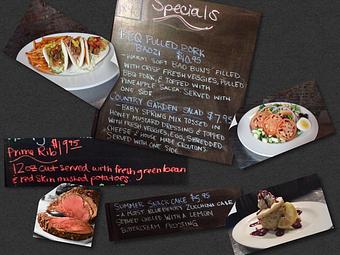 Specials
BBQ PULLED PORK
BAOZI $10.95
- HARDY SOFT BAO BUNS FILLED
WITH CRISP FRESH VEGGIES, PULLED
BBQ PORK, & TOPPED WITH
PINEAPPLE SALSA SERVED WITH
ONE SIDE
COUNTRY GARDEN SALAD $7.95
- BABY SPRING MIX TOSSED IN
HONEY MUSTARD DRESSING & TOPPED
WITH FRESH VEGGIES, EGG, SHREDDED
CHEESE & HOUSE MADE CROUTONS.
SERVED WITH ONE SIDE
Prime Rib $19.95
12oz cut served with fresh green bean
& red skin mashed potatoes
SUMMER SNACK CAKE $5.95
- A MOIST BLUEBERRY ZUCCHINI CAKE
SERVED CHILLED WITH A LEMON
BUTTERCREAM FROSTING